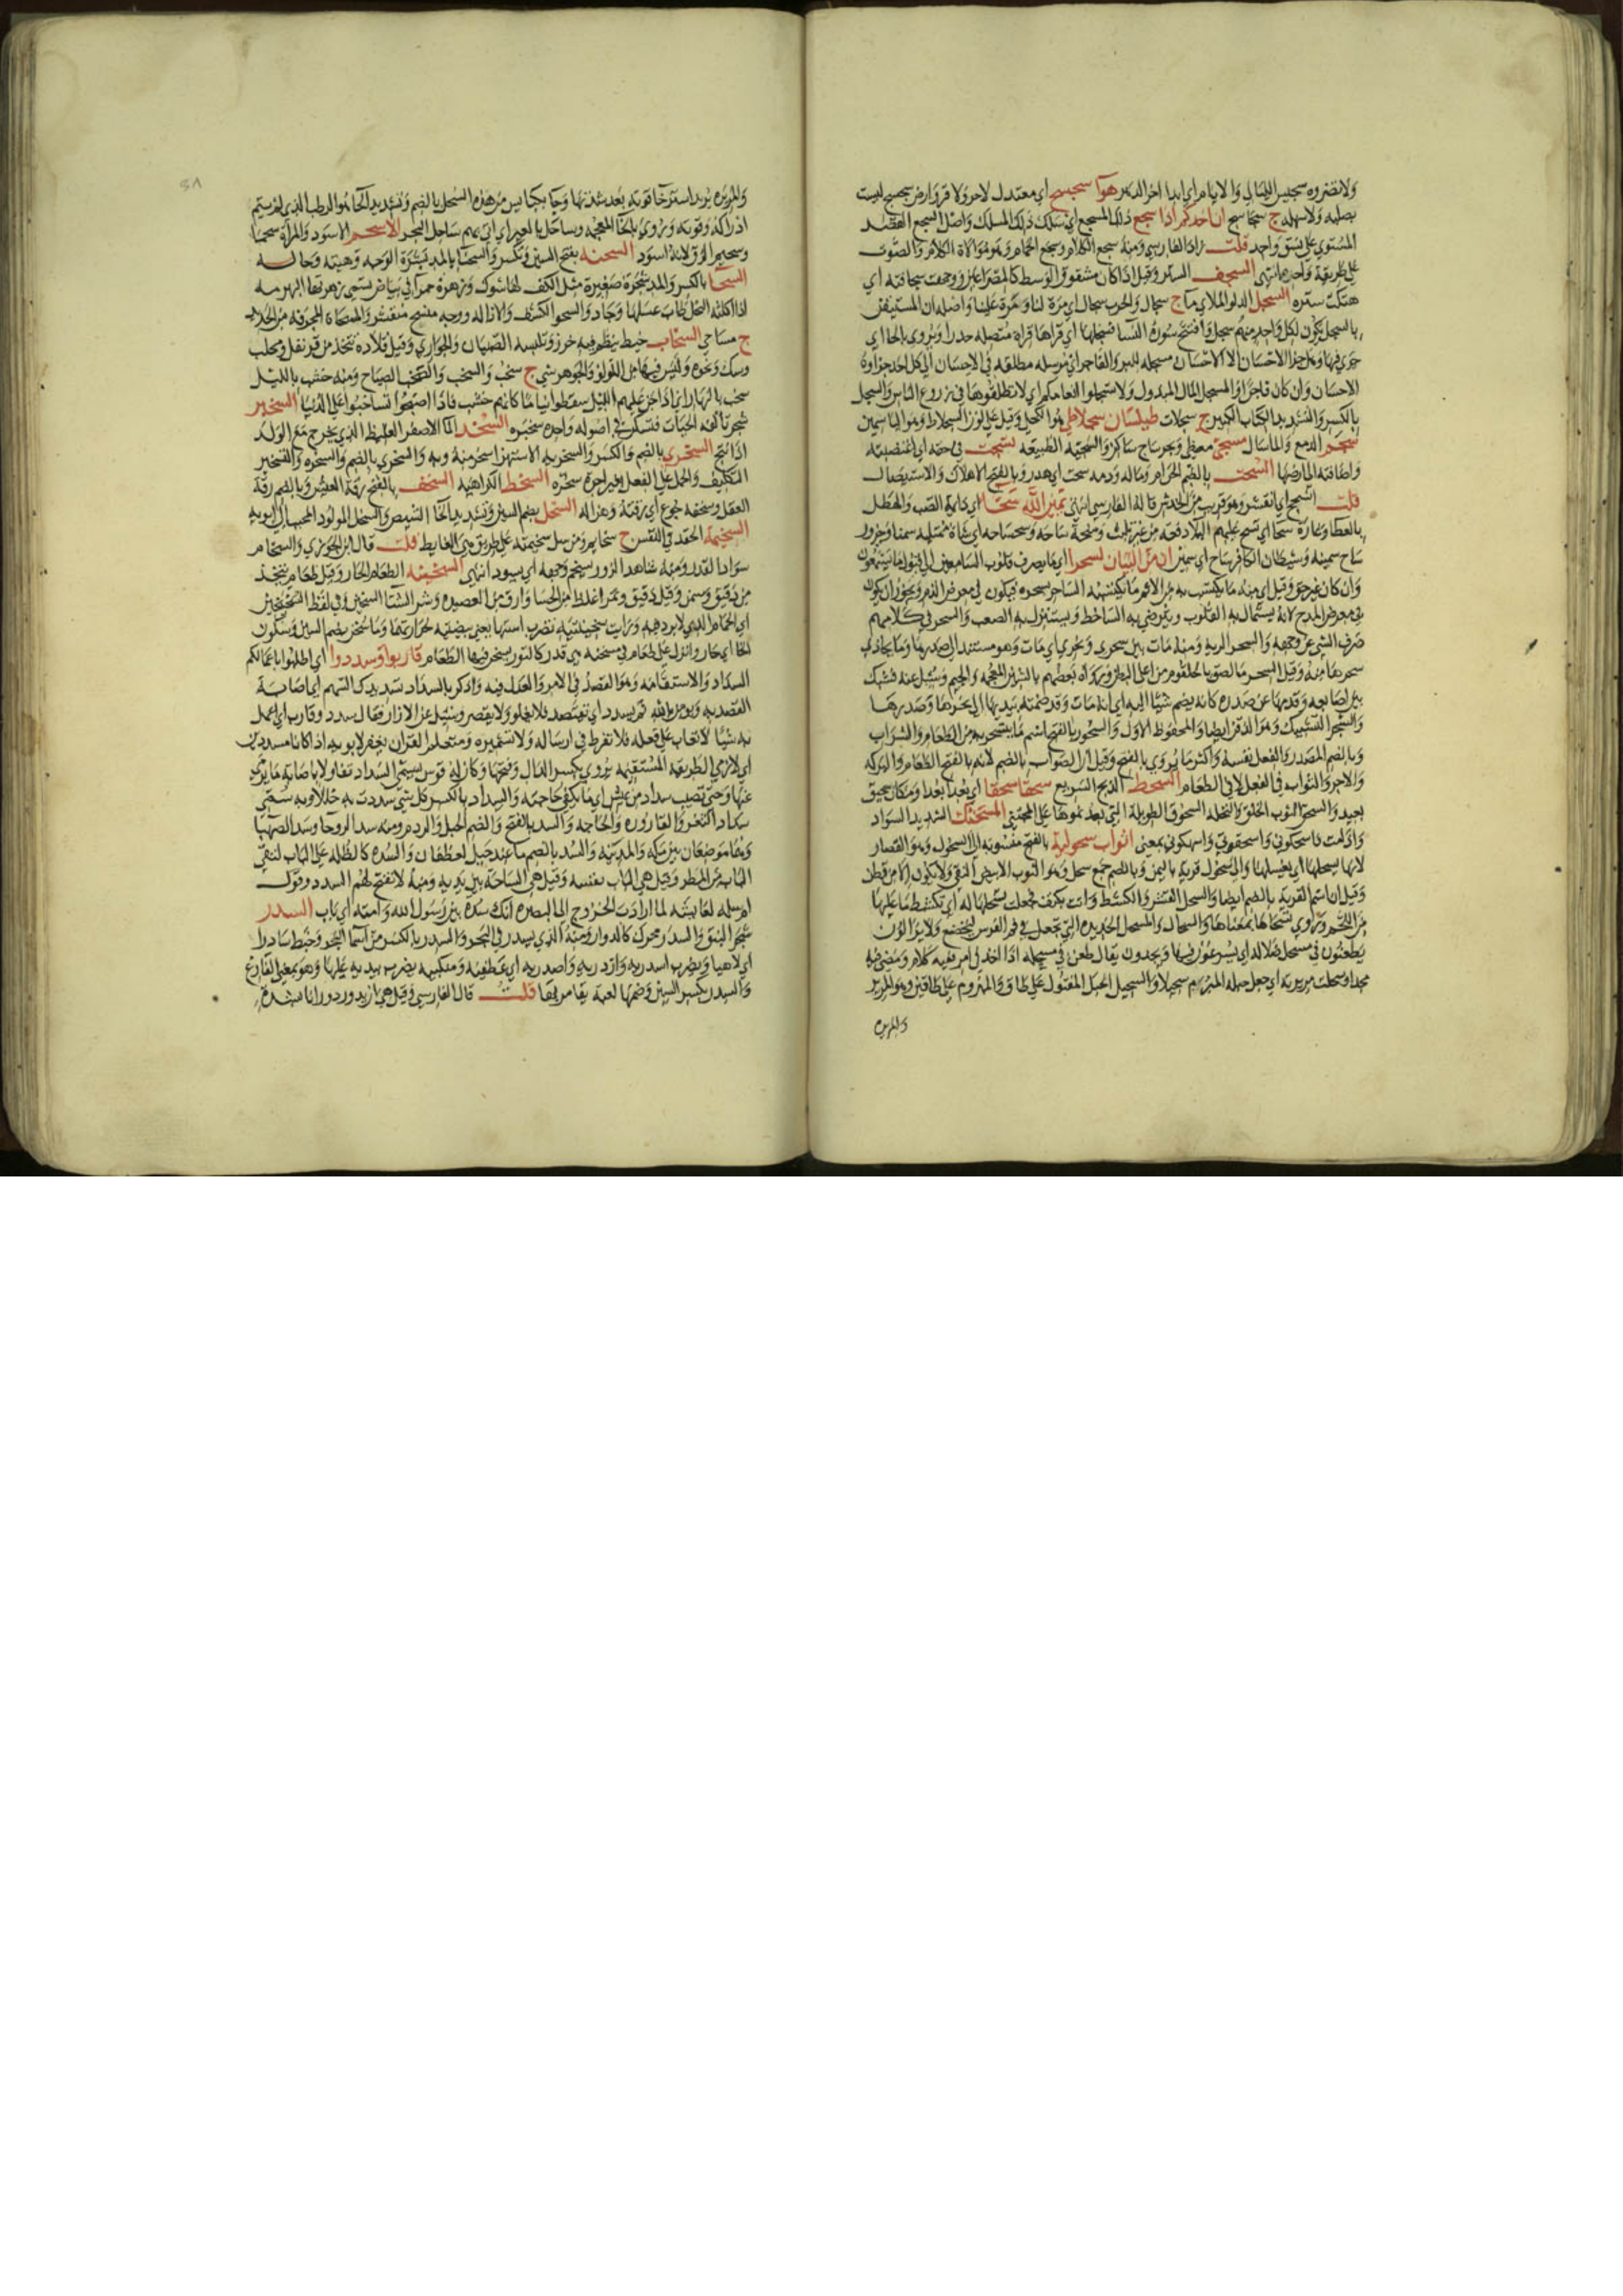 ولا يضره سجيس الليالي والايام اي ابدا اخر الدهر هوآ سجسج اي معتدل لا حر ولا قر وارض سجسج ليست
بصلبة ولا سهلة ج سجاسج ان احدكم اذا سجع ذلك المسجع اي سلك ذلك المسلك واصل السجع القصد
المستوي على نسق واحد قلت زاد الفارسي ومنه سجع الكلام وسجع الحمام وهو موالاة الكلام والصوت
على طريقة واحدة انتهى السجف الستر وقيل اذا كان مشقوق الوسط كالمصراعين ووجهت سجافته اي
هتكت ستره السجل الدلو الملاي مآ ج سجال والحرب سجال اي مرة لنا ومرة علينا واصله ان المستقين
بالسجل يكون لكل واحد منهم سجل وافتتح سورة النسا فسجلها اي قراها قراة متصلة حدرا ويروى بالحا اي
جري فيها وهل جزا الاحسان الا الاحسان مسجلة للبر والفاجر اي مرسلة مطلقة في الاحسان الى كل احد جزاوه
الاحسان وان كان فاجرا والمسجل المال المبذول ولا تسجلوا انعامكم اي لا تطلقوها في زروع الناس والسجل
بالكسر والتشديد الكتاب الكبير ج سجلات طيلسان سجلاطي هو الكحلي وقيل على لون السجلاط وهو الياسمين
سجم الدمع والما سال مسجى مغطى وبحر ساج ساكن والسجية الطبيعة
واضافته الى ارضها السحت بالضم الحرام وماله ودمه سحت اي هدر وبالفتح الاهلاك والاستيصال
قلت انسحج اي انقشر وهو قريب من الخدش قاله الفارسي انتهى يمين الله سحا اي دايمة الصب والهطل
بالعطا وغارة سحا اي تسح عليهم البلا دفعة من غير تلبث ومنحة ساحة وسحساحة اي شاة ممتلية سمنا وجزور
ساح سمينة وشيطان الكافر ساح اي سمين ان من البيان لسحرا اي ما يصرف قلوب السامعين الى قبول ما يسمعون
وان كان غير حق وقيل اي منه ما يكتسب به من الاثم ما يكتسبه الساحر بسحره فيكون في معرض الذم ويجوز ان يكون
في معرض المدح لانه يستمال به القلوب ويترضى به الساخط ويستنزل به الصعب والسحر في كلامهم
صرف الشي عن وجهه والسحر الرية ومنه مات بين سحري ونحري اي مات وهو مستند الى صدرها وما يحاذي
سحرها منه وقيل السحر ما لصق بالحلقوم من اعلى البطن ورواه بعضهم بالشين المعجمة والجيم وسئل عنه فشبك
بين اصابعه وقدمها عن صدره كانه يضم شيا اليه اي انه مات وقد ضمته بيديها الى نحرها وصدرها
والشجر التشبيك وهو الذقن ايضا والمحفوظ الاول والسحور بالفتح اسم ما يتسحر به من الطعام والشراب
وبالضم المصدر والفعل نفسه واكثر ما يروي بالفتح وقيل ان الصواب بالضم لانه بالفتح الطعام والبركة
والاجر والثواب في الفعل لا في الطعام السحط الذبح السريع سحقا سحقا اي بعدا بعدا ومكان سحيق
بعيد والسحق الثوب الخلق والنخلة السحوق الطويلة التي بعد ثمرها على المجتني المسحنكك الشديد السواد
اثواب سحولية بالفتح منسوبة الى السحول وهو القصار
لانه يسحلها اي يغسلها والى سحول قرية باليمن وبالضم جمع سحل وهو الثوب الابيض النقي ولا يكون الا من قطن
وقيل ان اسم القرية بالضم ايضا والسحل القشر والكشط وات بكتف فجعلت تسحلها له اي تكشط ما عليها
من اللحم وروي تسحاها بمعناها والسحال والمسحل الحديدة التي تجعل في فم الفرس ليخضع ولا يزالون
يطعنون في مسحل ضلالة اي يسرعون فيها ويجدون يقال طعن في مسحله اذا اخذ في امر فيه كلام ومضى فيه
مجدا وسحلت مريرته اي جعل حبله المبرم سحيلا والسحيل الحبل المفتول على طاق والمبروم على طاقين وهو المرير
والمريرة
والمريرة يريد استرخا قوته بعد شدتها وجآ بكبايس من هذه السحل بالضم وتشديد الحا هو الرطب الذي لم يتم
ادراكه وقوته ويروى بالخا المعجمة وساحل بالعير اي اتى بهم ساحل البحر الاسحم الاسود والمراة سحما
وسحيم الزق لانه اسود السحنة بفتح السين وتكسر والسحنا بالمد بشرة الوجه وهيئته وحاله
السحا بالكسر والمد شجرة صغيرة مثل الكف لها شوك وزهرة حمرآ في بياض تسمى زهرتها البهرمة
اذا اكلته النحل طاب عسلها وجاد والسحو الكشف والازالة ومسحاة المجرفة من الحديد
ج مساحي السخاب خيط ينظم فيه خرز وتلبسه الصبيان والجواري وقيل قلادة تتخذ من قرنفل ومحلب
وسك ونحوه وليس فيها من اللولو والجوهر شي ج سخب والسخب والصخب الصياح ومنه خشب بالليل
سخب بالنهار اي اذا جن عليهم الليل سقطوا نياما كانهم خشب فاذا اصبحوا تساخبوا على الدنيا السخبر
شجر تالفه الحيات فتسكن في اصوله واحده سخبرة السخد الما الاصفر الغليظ الذي يخرج مع الولد
اذا نتج السخري بالضم والكسر والسخرية الاستهزا سخر منه وبه والسخري بالضم والسخرة والتسخير
التكليف والحمل على الفعل بغير اجرة سخره السخط الكراهية السخف بالفتح رقة العيش وبالضم رقة
العقل وسخفة جوع اي رقته وهزاله السخل بضم السين وتشديد الخا الشيص والسخل المولود المحبب الى ابويه
السخيمة الحقد في النفس ج سخايم ومن سل سخيمته على طريق هي الغايط قلت قال ابن الجوزي والسخام
سواد القدر ومنه شاهد الزور يسخم وجهه اي يسود انتهى السخينة الطعام الحار وقيل طعام يتخذ
من دقيق وسمن وقيل دقيق وتمر اغلظ من الحسا وارق من العصيدة وشر الشتا السخين وفي لفظ السخيخين
اي الحار الذي لا برد فيه ورايت سخينتيه تضرب استها يعني بيضتيه لحرارتهما وما سخن بضم السين وسكون
الخا اي حار وانزل على طعام في مسخنة هي قدر كالتور يسخن فيها الطعام قاربوا وسددوا اي اطلبوا باعمالكم
السداد والاستقامة وهو القصد في الامر والعدل فيه واذكر بالسداد تسديدك السهم اي اصابة
القصد به ويومن بالله ثم يسدد اي يقتصد فلا يغلو ولا يقصر وسئل عن الازار فقال سدد وقارب اي اعمل
به شيا لا تعاب على فعله فلا تفرط في ارساله ولا تشميره ومتعلم القران يغفر لابويه اذا كانا مسددين
اي لازمي الطريقة المستقيمة يروي بكسر الدال وفتحها وكان له قوس يسمى السداد تفاولا باصابة ما يرمى
عنها وحتى تصيب سدادا من عيش اي ما يكفي حاجته والسداد بالكسر كل شي سددت به خللا وبه سمي
سداد الثغر والقارورة والحاجة والسد بالفتح والضم الجبل والردم ومنه سد الروحا وسد الصهبا
وهما موضعان بين مكة والمدينة والسد بالضم ما عند جبل لغطفان والسدة كالظلة على الباب لتقي
الباب من المطر وقيل هي الباب نفسه وقيل هي الساحة بين يديه ومنه لا تفتح لهم السدد وقول
ام سلمة لعايشة لما ارادت الخروج الى البصرة انك سدة بين رسول الله وامته اي باب السدر
شجر النبق والسدر محرك كالدوار ومنه الذي يسدر في البحر والسدر بالكسر من اسما البحر وخبط سادرا
اي لاهيا ويضرب اسدريه وازدريه واصدريه اي عطفيه ومنكبيه يضرب بيديه عليهما وهو بمعنى الفارغ
والسدر بكسر السين وضمها لعبة يقامر بها قلت قال الفارسي وقيل هي ان يدور دورانا شديدا